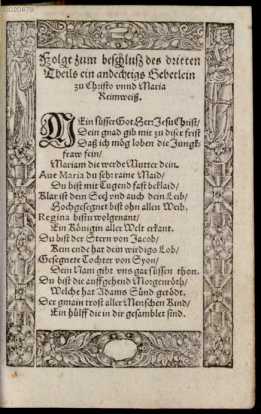 Folgt zum beschluß des dritten
Theils ein andechtigs Gebetlein
zu Christo vnnd Maria
Reimweiß.
MEin süsser Got, Herr Jesu Christ/
Dein gnad gib mir zu diser frist
Daß ich mög loben die Jungk-
fraw fein/
Mariam die werde Mutter dein.
Aue Maria du sehr raine Maid/
Du bist mit Tugend fast beklaid/
Klar ist dein Seel vnd auch dein Leib/
Hochgesegnet bist ohn allen Weib.
Regina bistu wolgenant/
Ein Königin aller Welt erkant.
Du bist der Stern von Jacob/
Kein ende hat dein wirdigs Lob/
Gesegnete Tochter von Syon/
Dein Nam gibt vns gar süssen thon.
Du bist die auffgehend Morgenröth/
Welche hat Adams Sünd getödt.
Der gmain trost aller Menschen Kind/
Ein hülff die in dir gesamblet sind.